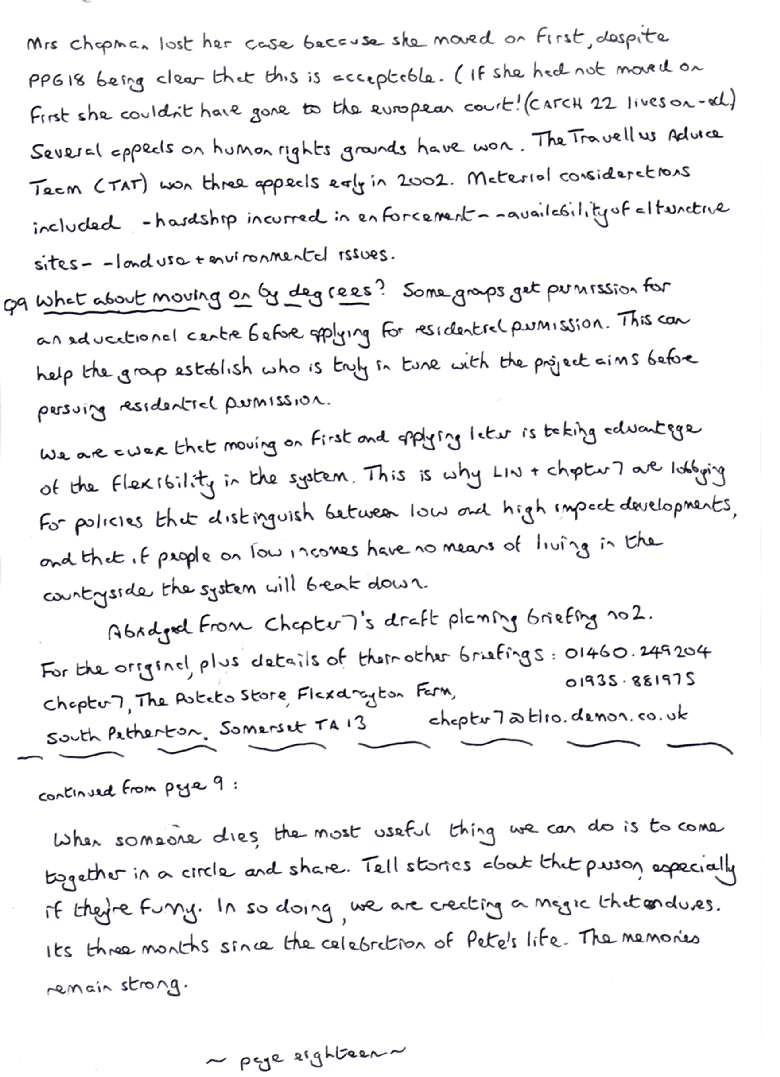 Mrs Chapman lost her case because she moved on first, despite
PPG18 being clear that this is acceptable. (If she had not moved on
first she couldn't have gone to the european court! (CATCH 22 lives on -ed.)
Several appeals on human rights grounds have won. The Travellers Advice
Team (TAT) won three appeals early in 2002. Material considerations
included -hardship incurred in enforcement- -availability of alternative
sites- -land use + environmental issues.
Q9 What about moving on by degrees? Some groups get permission for
an educational centre before applying for residential permission. This can
help the group establish who is truly in tune with the project aims before
persuing residential permission.
We are aware that moving on first and applying later is taking advantage
of the flexibility in the system. This is why LIN + chapter 7 are lobbying
for policies that distinguish between low and high impact developments,
and that if people on low incomes have no means of living in the
countryside the system will break down.
Abridged from Chapter 7's draft planing briefing no 2.
For the original, plus details of their other briefings: 01460.249204
01935.881975
Chapter 7, The Potato Store, Flaxdrayton Farm,
South Petherton, Somerset TA13 chapter7@tlio.demon.co.uk
continued from page 9:
When someone dies, the most useful thing we can do is to come
together in a circle and share. Tell stories about that person, especially
if they're funny. In so doing, we are creating a magic that endures.
Its three months since the celebration of Pete's life. The memories
remain strong.
~ page eighteen ~